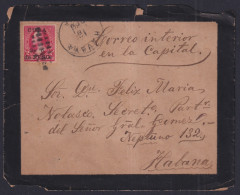 Correo interior
en la Capital.
Sr. Don Felix Maria
Notasco, Secret. Part.
del Señor Gral Gomez.
Neptuno 182.
Habana